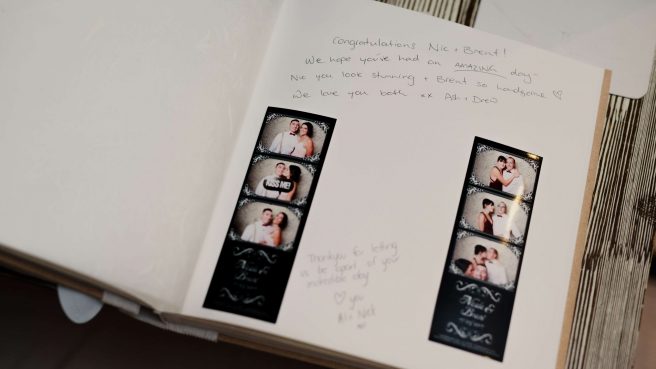 Congratulations Nic + Brent!
We hope you've had an AMAZING day -
Nic you look stunning + Brent so handsome ♡
We love you both xx Ash + Drew
KISS ME!
Thankyou for letting
us be apart of your
incredible day
♡ you
Al + Nick
Brent